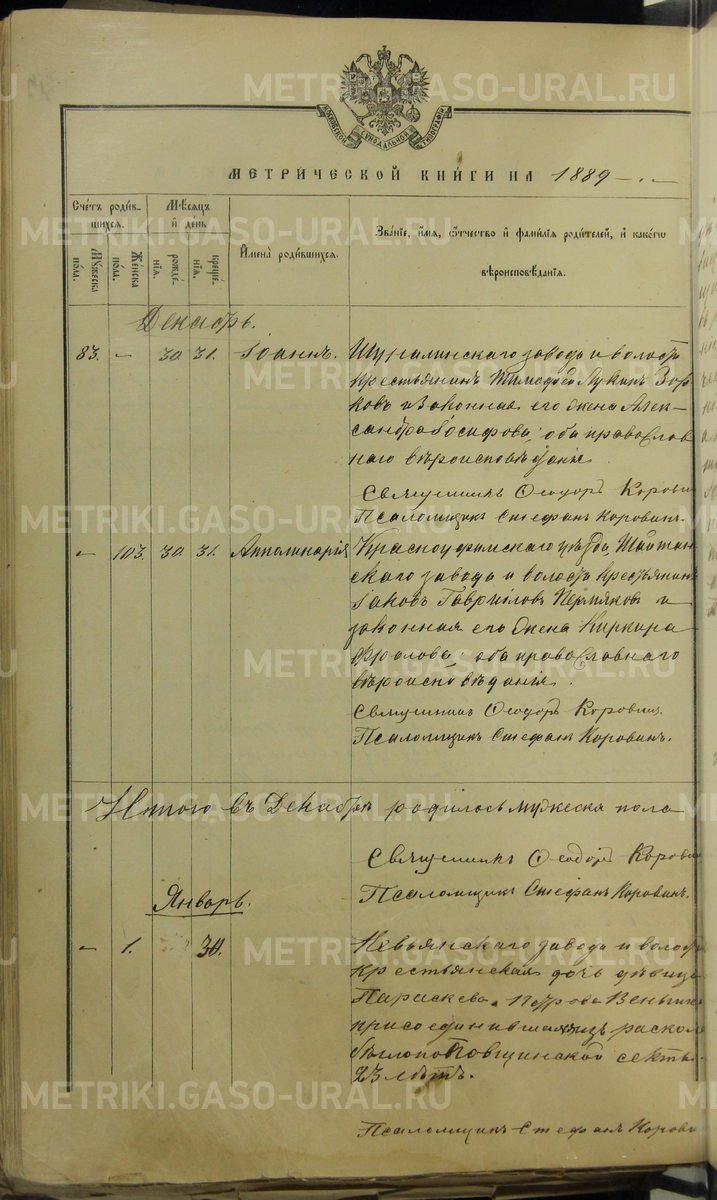 МОСКОВСКОЙ СѴНОДАЛЬНОЙ ТИПОГРАФІИ
МЕТРИ́ЧЕСКОЙ КНИ́ГИ НА 1889
Сче́тъ роди́в-
шихся.
Мѣ́сяцъ
и҆ де́нь
И҆мена̀ роди́вшихся.
Зва́нїе, и҆́мя, ѻ҆́тчество и҆ фами́лїя роди́телей, и҆ како́гѡ
вѣроисповѣ́данїя.
Му́жеска
по́ла.
Же́нска
по́ла.
рожде́-
нїя.
креще́-
нїя.
Декабрь.
83. — 30 31. Іоаннъ. Шуралинскаго завода и волости
крестьянинъ Тимофей Лукинъ Зор
ковъ и законная его жена Алек-
сандра Іосифова; оба православ
наго вѣроисповѣданія
Священникъ Ѳеодоръ Корови
Псаломщикъ Стефанъ Коровинъ.
— 103. 30 31. Апполинарія Красноуфимскаго уѣзда, Шайтан
скаго завода и волости крестьянинъ
Іаковъ Гавриловъ Пермяковъ и
законная его жена
Фролова; оба православнаго
вѣроисповѣданія.
Священникъ Ѳеодоръ Коровинъ.
Псаломщикъ Стефанъ Коровинъ.
Итого въ Декабрѣ родилось мужеска пола
Священникъ Ѳеодоръ Корови
Псаломщикъ Стефанъ Коровинъ.
Январь.
— 1. 30. Невьянскаго завода и волости
крестьянская дочь дѣвица
Параскева Петрова
присоединившаяся изъ раскола
бѣлопоповщинской секты
23 лѣтъ.
Псаломщикъ Стефанъ Корови
METRIKI.GASO-URAL.RU